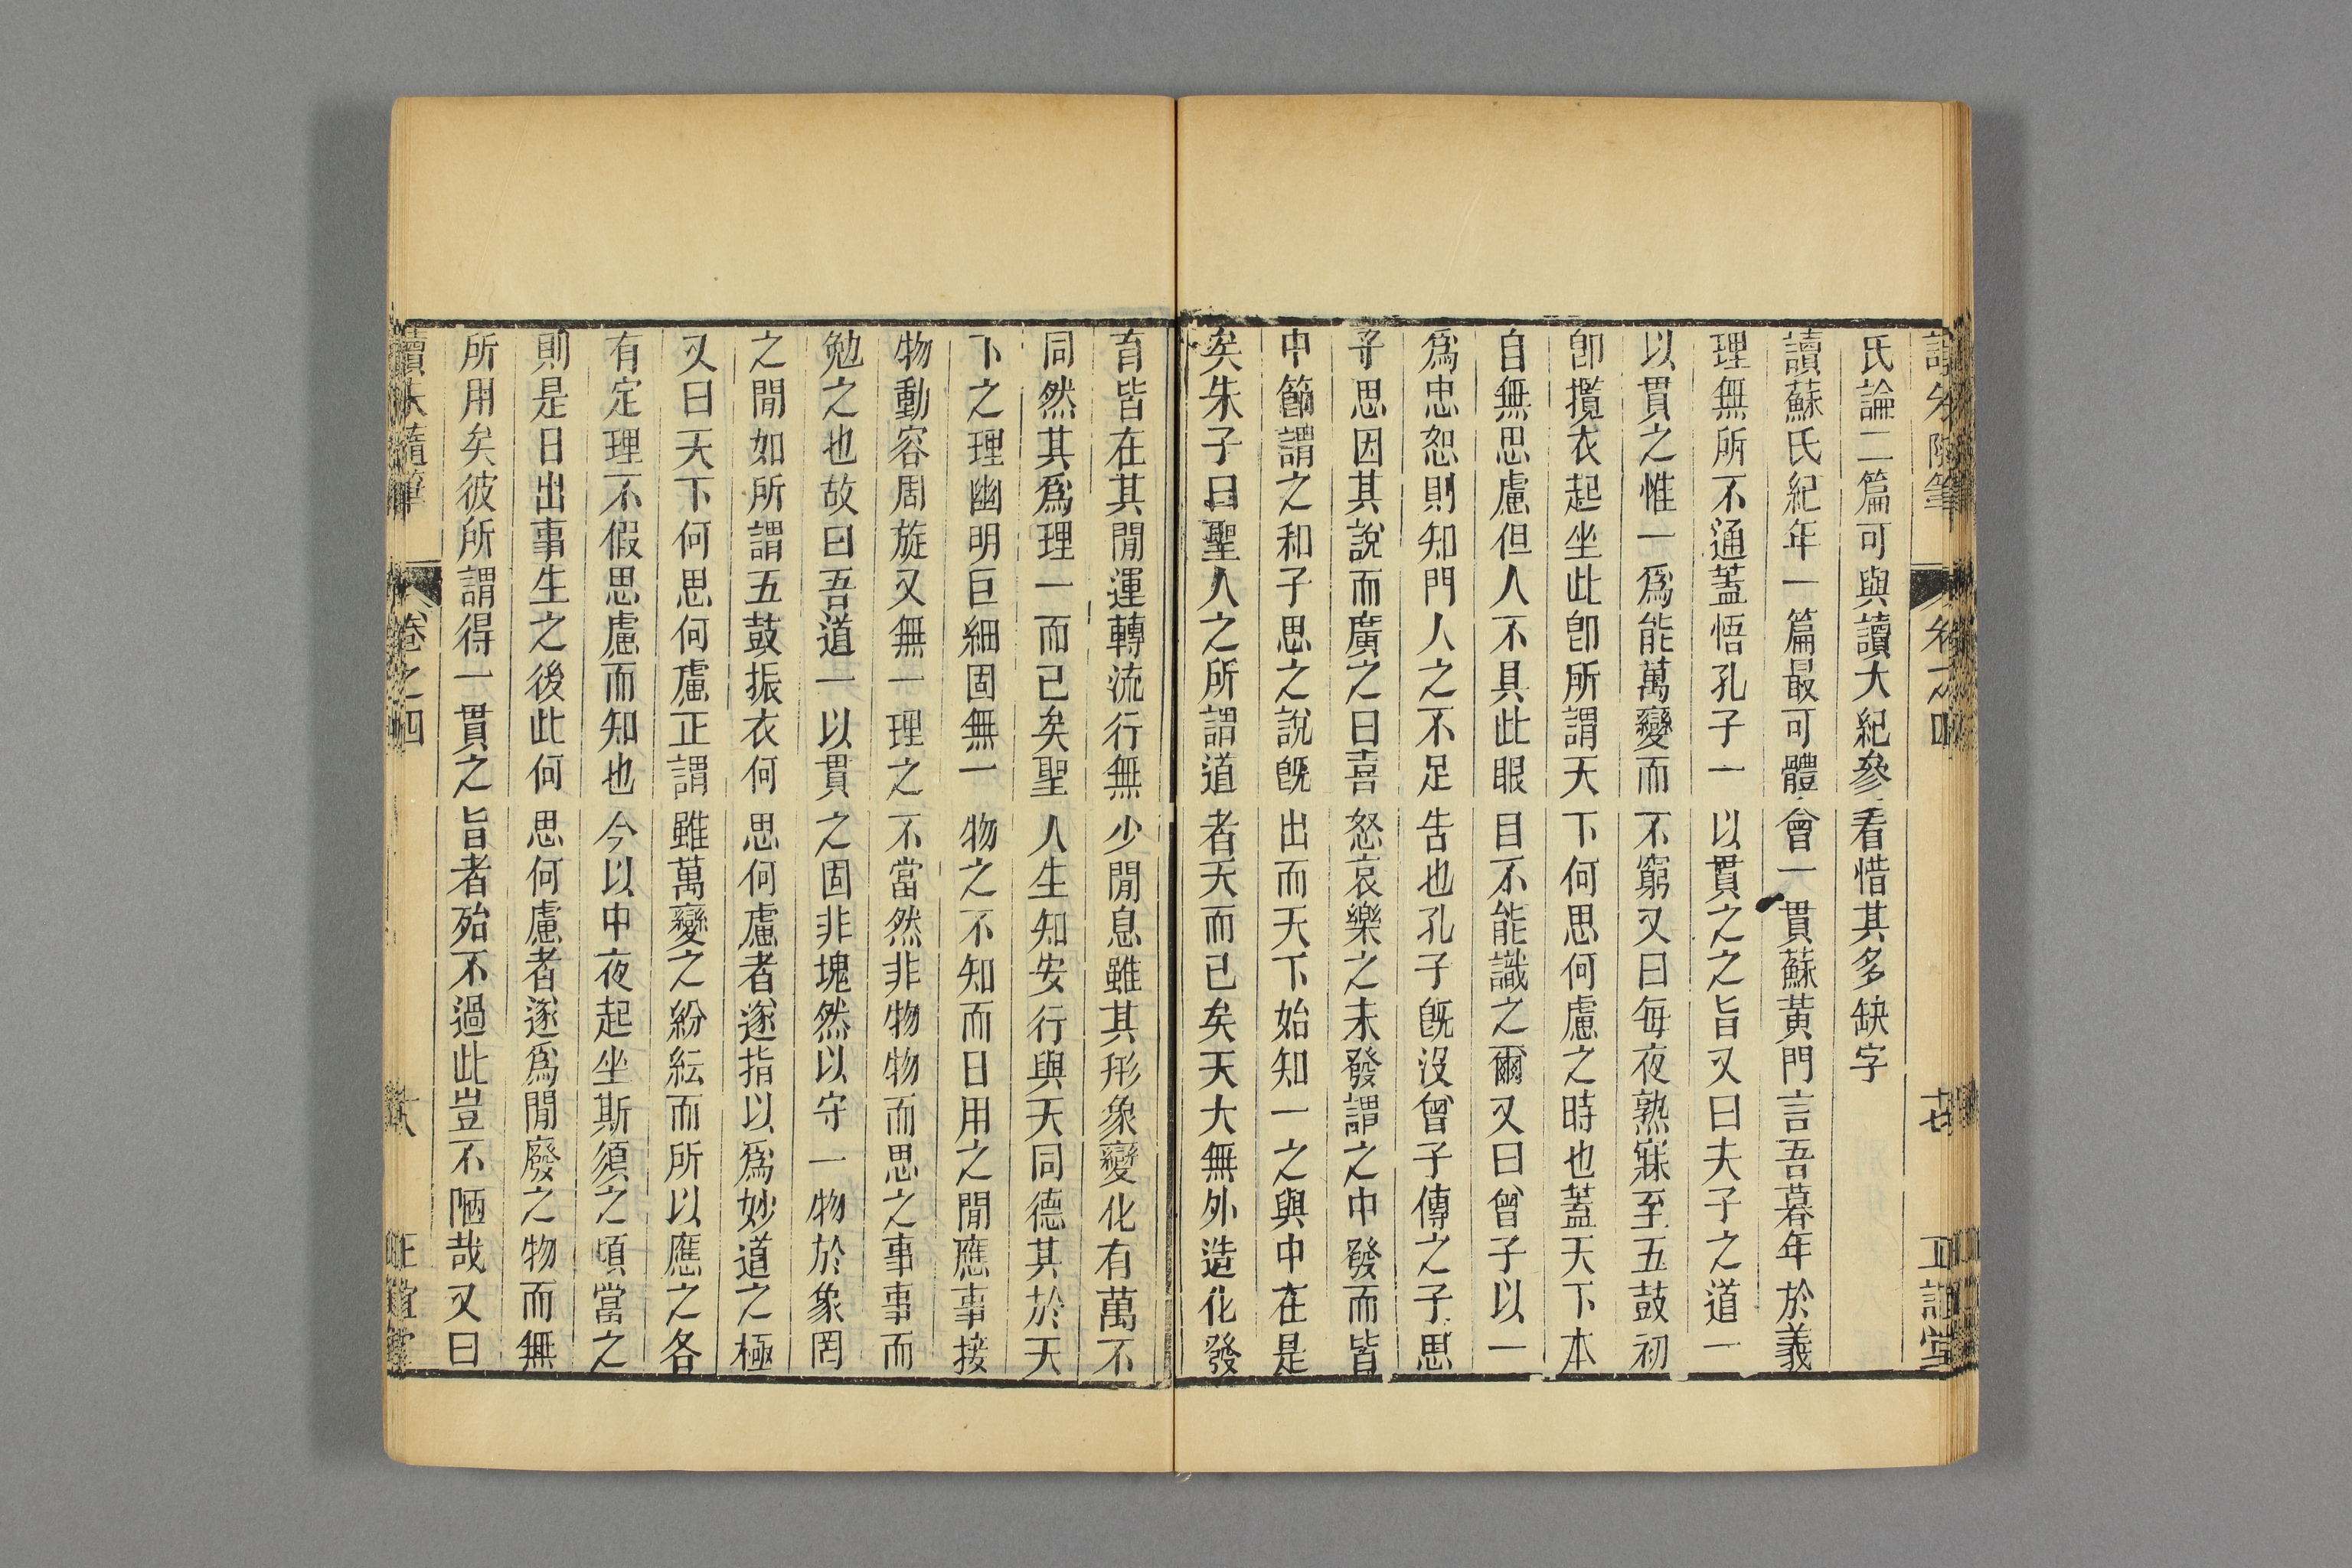 氏論二篇可與讀大紀參看惜其多缺字
讀蘇氏紀年一篇最可體會一貫蘇黃門言吾暮年於義
理無所不通蓋悟孔子一以貫之之旨又曰夫子之道一
以貫之惟一爲能萬變而不窮又曰每夜熟寐至五鼓初
卽攬衣起坐此卽所謂天下何思何慮之時也蓋天下本
自無思慮但人不具此眼目不能識之爾又曰曾子以一
爲忠恕則知門人之不足告也孔子旣沒曾子傳之子思
子思因其說而廣之曰喜怒哀樂之未發謂之中發而皆
中節謂之和子思之說旣出而天下始知一之與中在是
矣朱子曰聖人之所謂道者天而已矣天大無外造化發
育皆在其閒運轉流行無少閒息雖其形象變化有萬不
同然其爲理一而已矣聖人生知安行與天同德其於天
下之理幽明巨細固無一物之不知而日用之閒應事接
物動容周旋又無一理之不當然非物物而思之事事而
勉之也故曰吾道一以貫之固非塊然以守一物於象罔
之閒如所謂五鼓振衣何思何慮者遂指以爲妙道之極
又曰天下何思何慮正謂雖萬變之紛紜而所以應之各
有定理不假思慮而知也今以中夜起坐斯須之頃當之
則是日出事生之後此何思何慮者遂爲閒廢之物而無
所用矣彼所謂得一貫之旨者殆不過此豈不陋哉又曰
讀朱隨筆 卷之四 十八 正誼堂